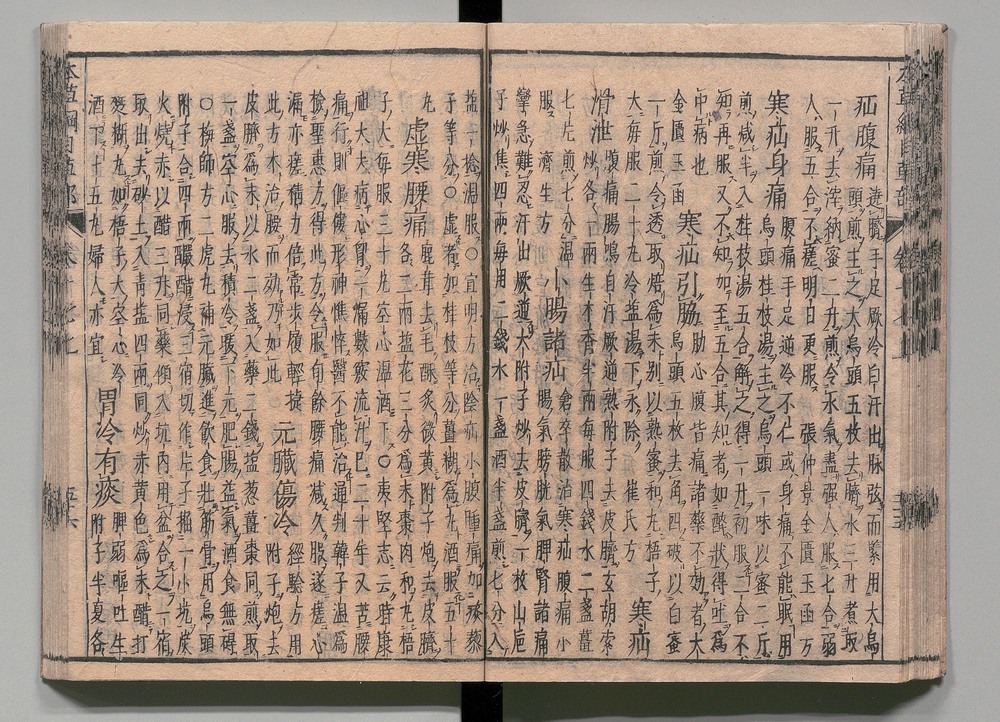 疝腹痛 遶臍手足厥冷自汗出脉弦而緊用大烏
頭煎主之大烏頭五枚去臍水三升煮取
一升去滓納蜜二升煎令水氣盡强人服七合弱
人服五合不瘥明日更服 張仲景金匱玉函方
寒疝身痛 腹痛手足逆冷不仁或身痛不能眠用
烏頭桂枝湯主之烏頭一味以蜜二斤
煎減半入桂枝湯五合解之得一升初服二合不
知再服又不知加至五合其知者如醉狀得吐爲
中病也
金匱玉函
寒疝引脇 肋心腹皆痛諸藥不効者大
烏頭五枚去角四破以白蜜
一斤煎令透取焙爲末别以熟蜜和丸梧子
大每服二十丸冷鹽湯下永除 崔氏方
寒疝
滑泄 腹痛腸鳴自汗厥逆熟附子去皮臍玄胡索
炒各一兩生木香半兩每服四錢水二盞薑
七片煎七分温
服 濟生方
小腸諸疝 倉卒散治寒疝腹痛小
腸氣膀胱氣脾腎諸痛
攣急難忍汗出厥逆大附子炒去皮臍一枚山梔
子炒焦四兩每用二錢水一盞酒半盞煎七分入
鹽一捻温服○宣明方治陰疝小腹腫痛加蒺藜
子等分○虛者加桂枝等分薑糊爲丸酒服五十
丸
虛寒腰痛 鹿茸去毛酥炙微黄附子炮去皮臍
各二兩鹽花三分爲末棗肉和丸梧
子大每服三十丸空心温酒下○夷堅志云時康
祖大夫病心胷一漏數竅流汁巴二十年又苦腰
痛行則傴僂形神憔悴醫不能治通判韓子温爲
檢聖惠方得此方令服旬餘腰痛減久服遂瘥心
漏亦瘥精力倍常步履輕捷
此方本治腰而効乃如此
元臟傷冷 經驗方用
附子炮去
皮臍爲末以水二盞入藥二錢鹽葱薑棗同煎取
一盞空心服去積冷暖下元肥腸益氣酒食無碍
○梅師方二虎丸補元臟進飲食壯筋骨用烏頭
附子合四兩釅醋浸三宿切作片子掘一小坑炭
火燒赤以醋三升同藥傾入坑内用盆合之一宿
取出去砂土入青鹽四兩同炒赤黄色爲末醋打
麪糊丸如梧子大空心冷
酒下十五丸婦人亦宜
胃冷有痰 脾弱嘔吐生
附子半夏各